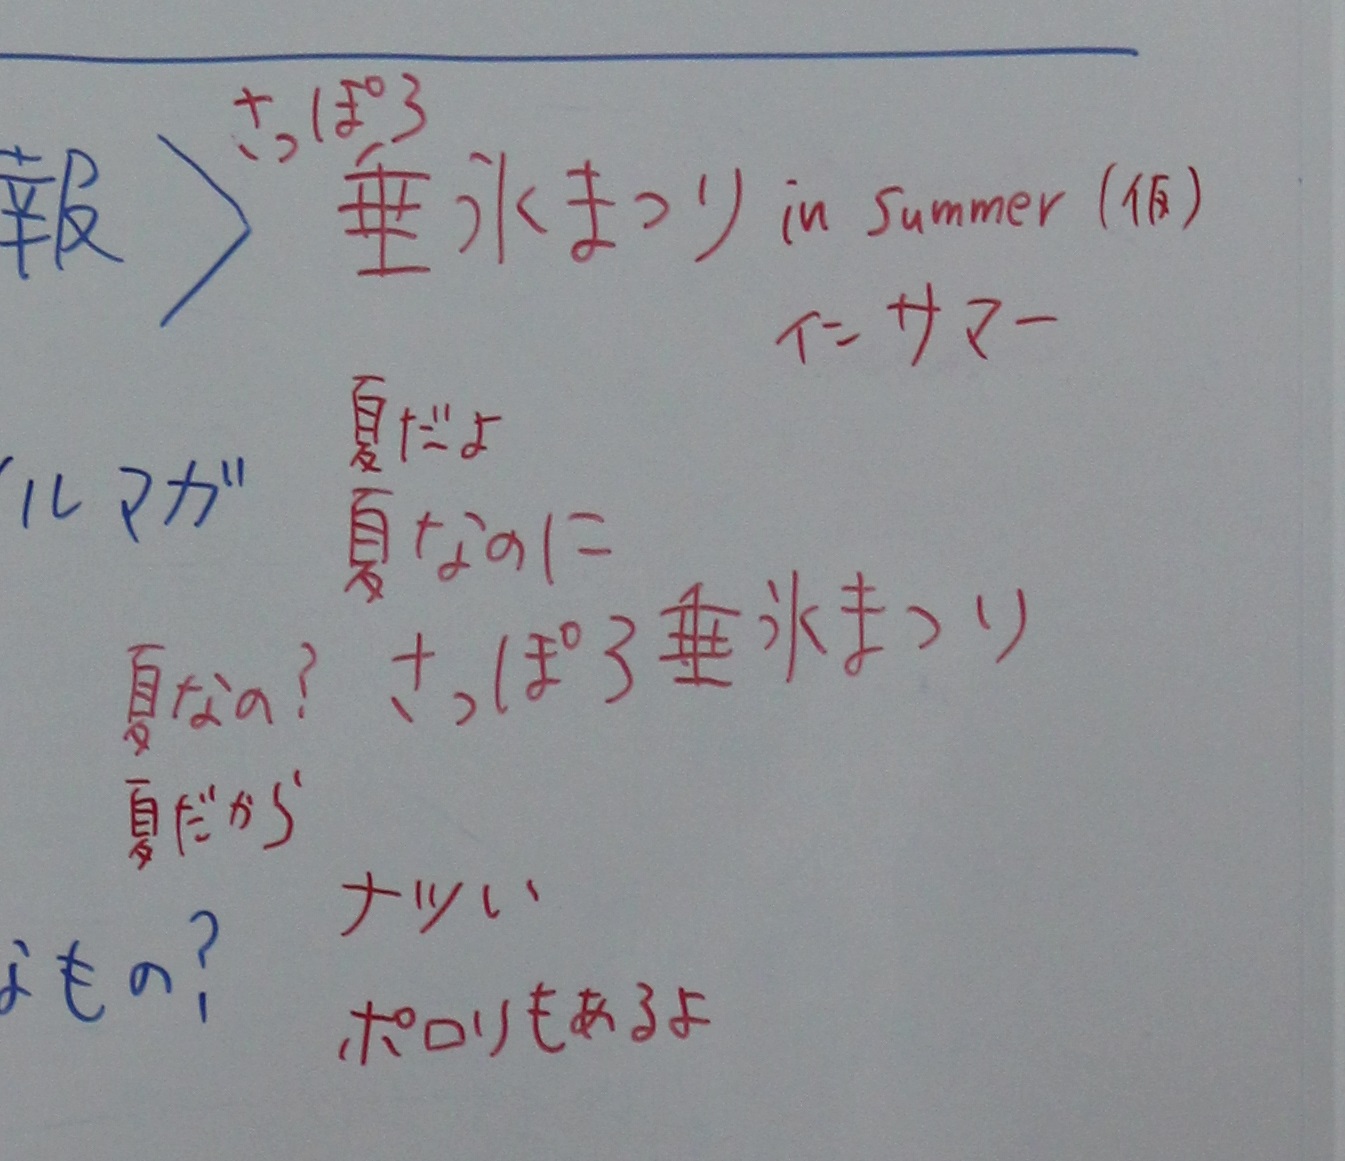 さっぽろ
報＞垂氷まつり in summer (仮)
イン サマー
夏だよ
ルマガ
夏なのに
夏なの? さっぽろ垂氷まつり
夏だから
ナツい
なもの?
ポロリもあるよ